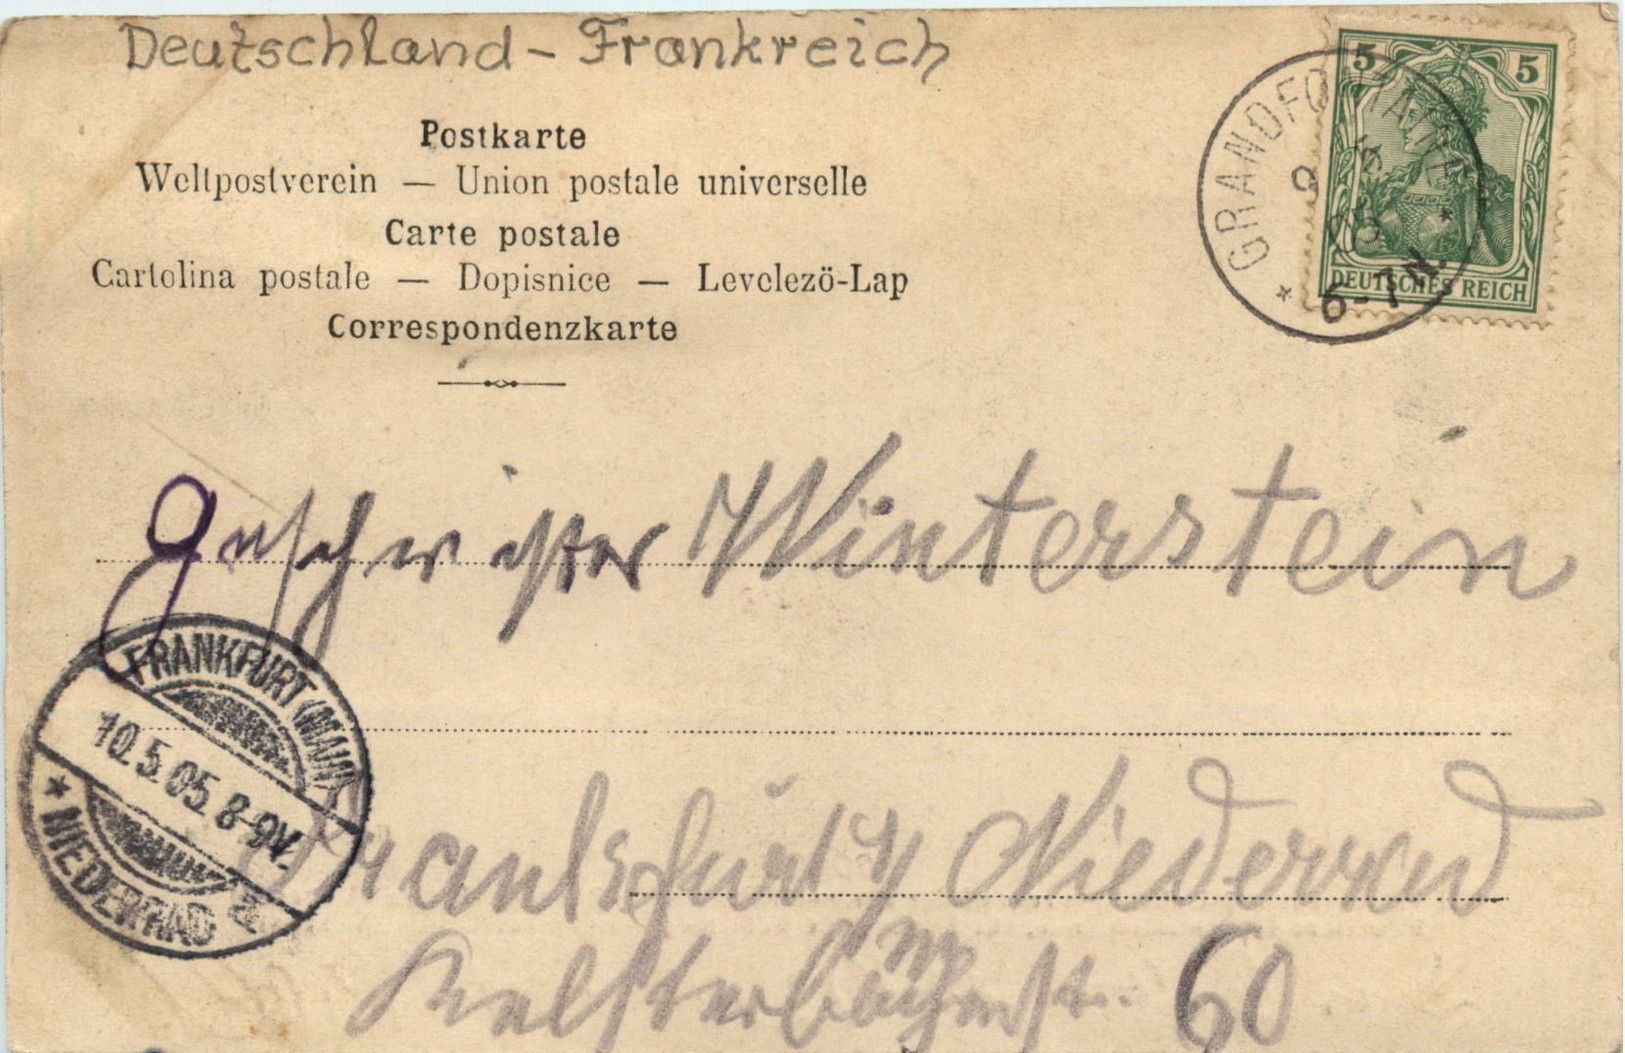 Deutschland - Frankreich
Postkarte
Weltpostverein — Union postale universelle
Carte postale
Cartolina postale — Dopisnice — Levelezö-Lap
Correspondenzkarte
5 5
DEUTSCHES REICH
6-7 N.
Geschwister Winterstein
FRANKFURT (MAIN)
10.5.05. 8-9V.
* NIEDERRAD
Frankfurt M Niederrad
Kelsterbacherst. 60